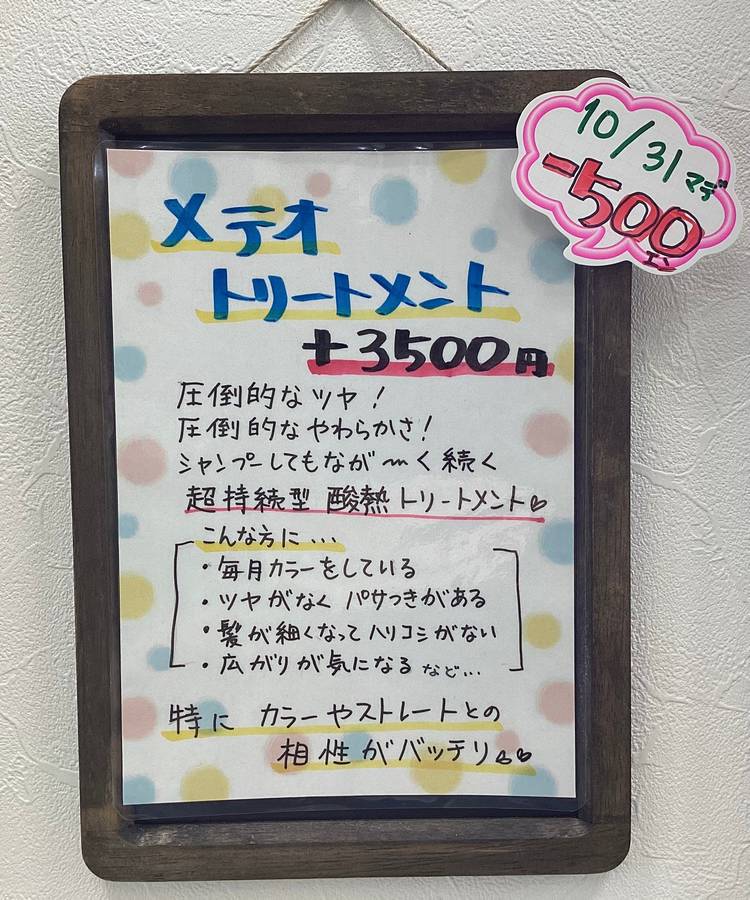 10/31マデ
-500
エン
メテオ
トリートメント
+3500円
圧倒的なツヤ!
圧倒的なやわらかさ!
シャンプーしてもなが〜く続く
超持続型 酸熱トリートメント♡
こんな方に...
・毎月カラーをしている
・ツヤがなく パサつきがある
・髪が細くなってハリコシがない
・広がりが気になる など...
特に カラーやストレートとの
相性がバッチリ♡♡